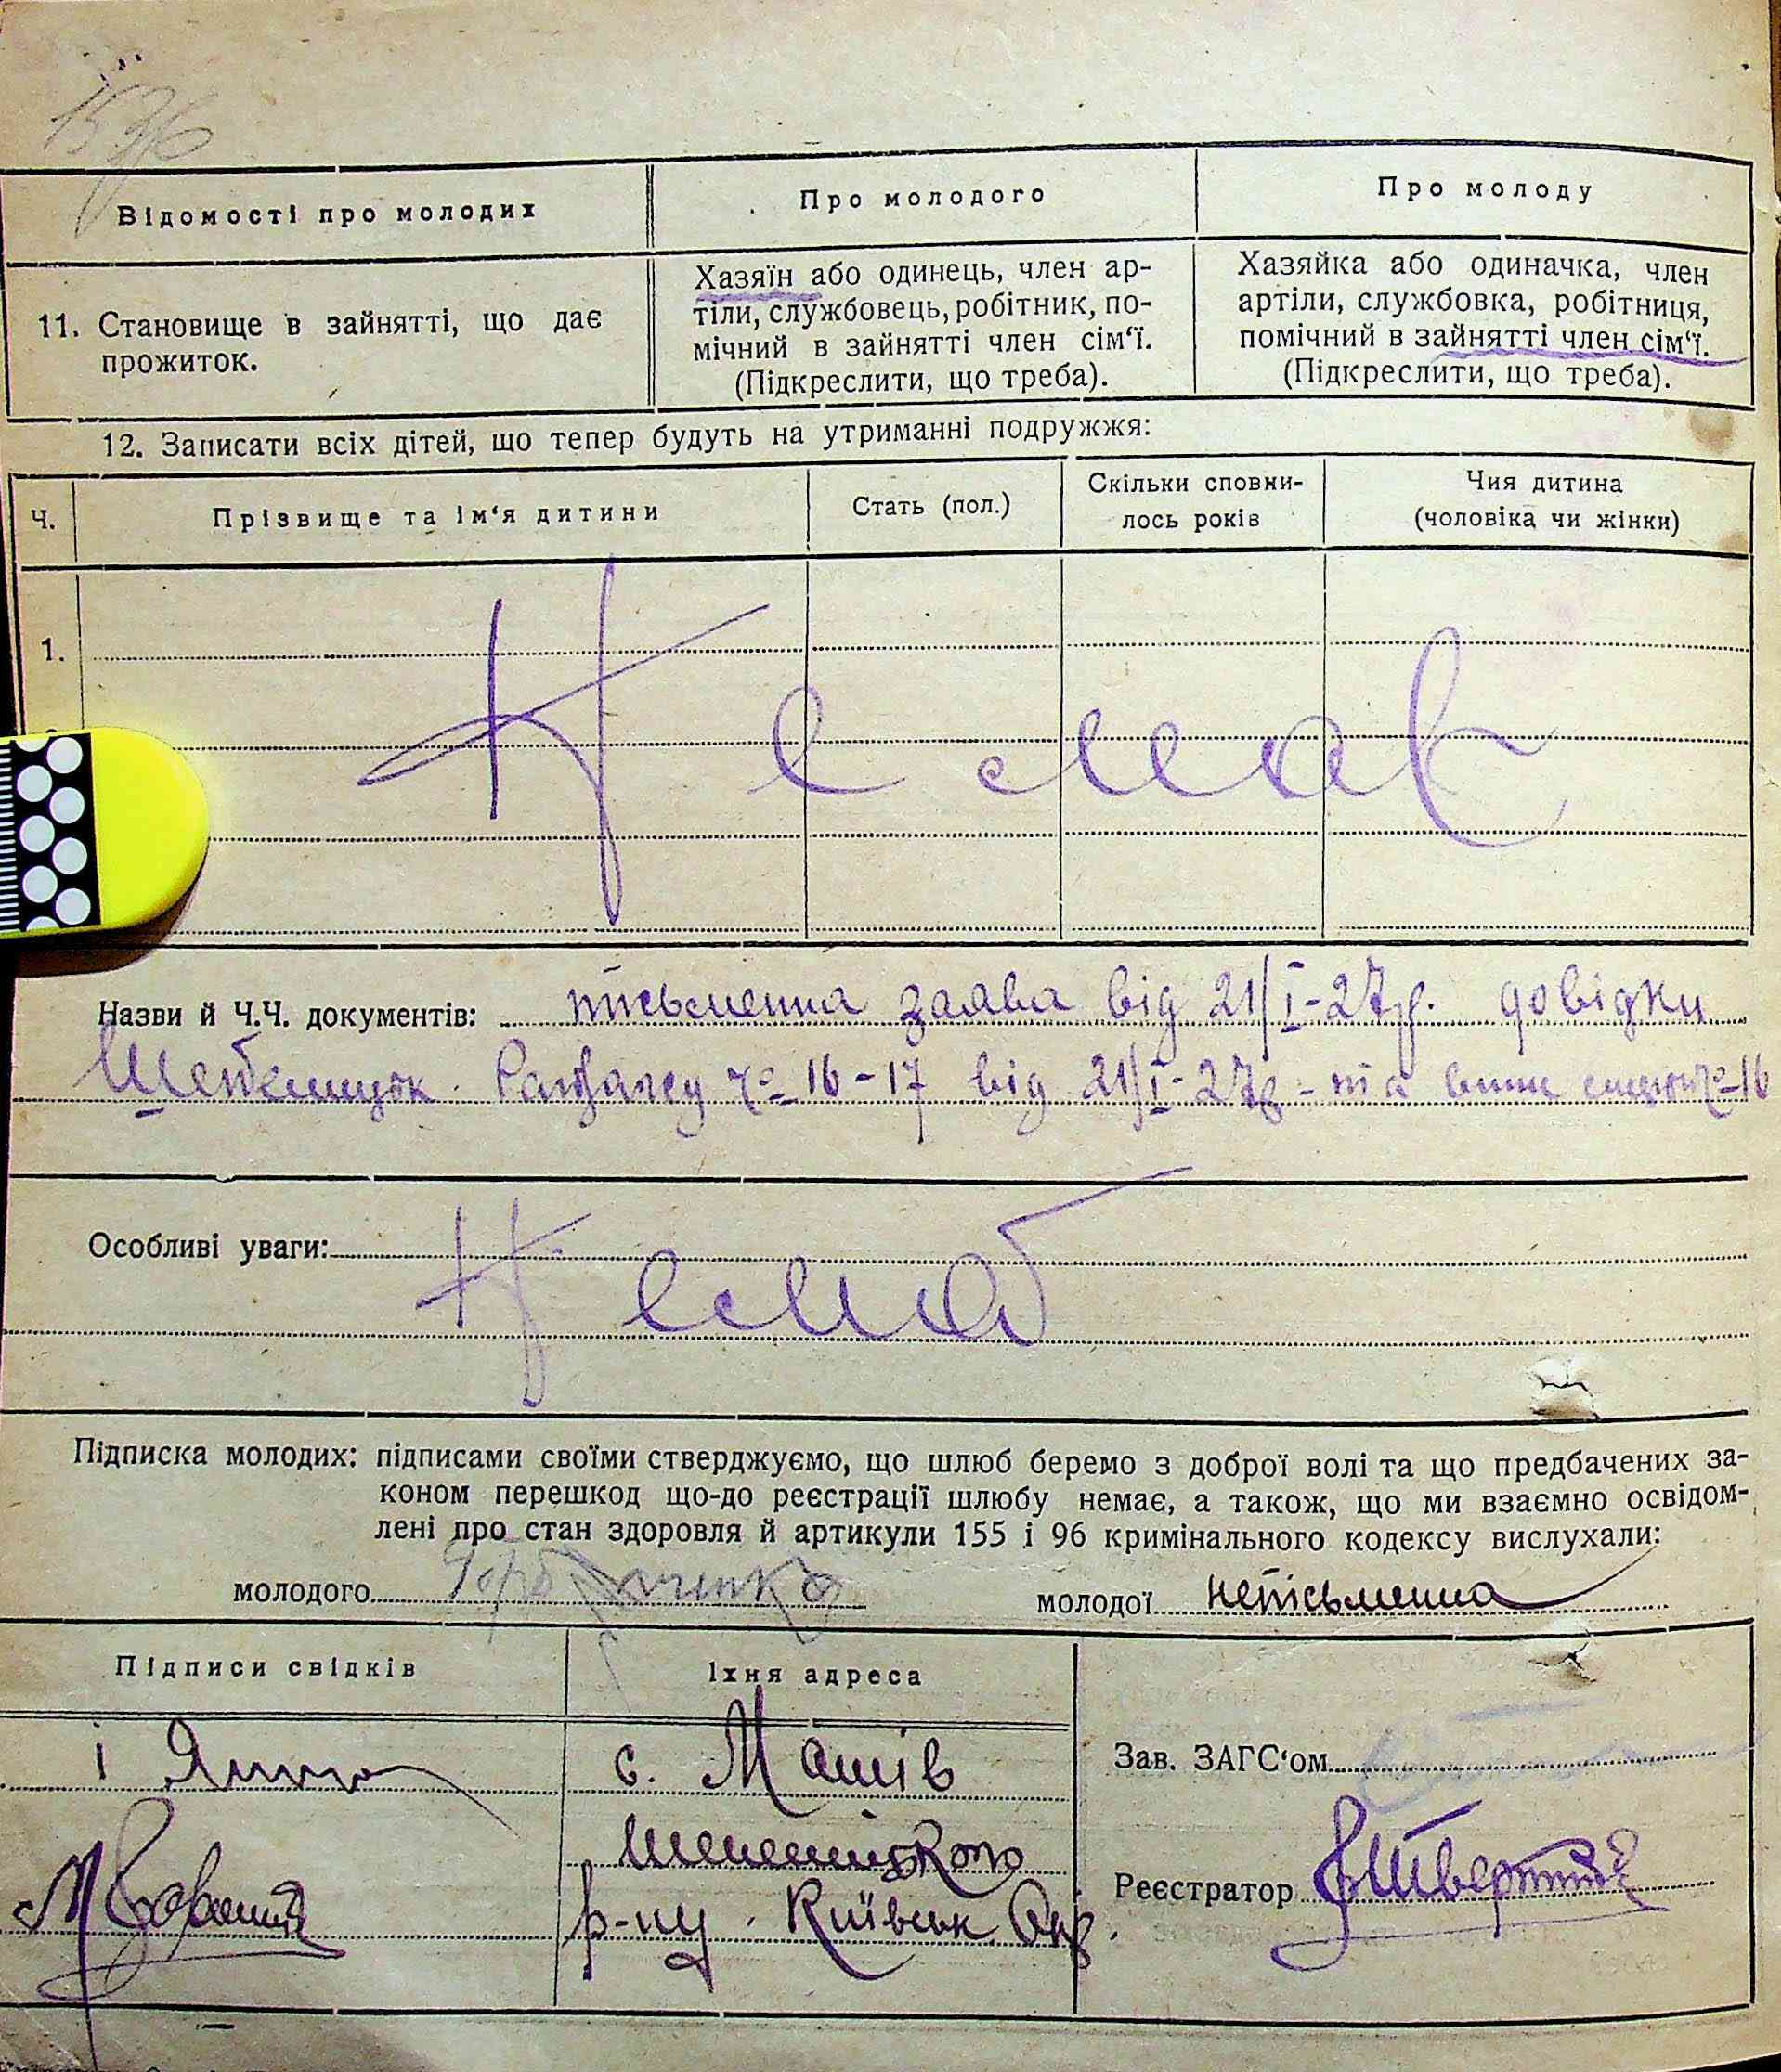 1536
Відомості про молодих
Про молодого
Про молоду
11. Становище в зайнятті, що дає
прожиток.
Хазяїн або одинець, член ар-
тіли, службовець, робітник, по-
мічний в зайнятті член сім‘ї.
(Підкреслити, що треба).
Хазяйка або одиначка, член
артіли, службовка, робітниця,
помічний в зайнятті член сім‘ї.
(Підкреслити, що треба).
12. Записати всіх дітей, що тепер будуть на утриманні подружжя:
Ч.
Прізвище та ім‘я дитини
Стать (пол.)
Скільки сповни-
лось років
Чия дитина
(чоловіка чи жінки)
1.
Немає
Назви й Ч.Ч. документів: письменна заява від 21/I-27р. довідки
16-17 від 21/I-27р - та 16
Особливі уваги:
Немає
Підписка молодих: підписами своїми стверджуємо, що шлюб беремо з доброї волі та що предбачених за-
коном перешкод що-до реєстрації шлюбу немає, а також, що ми взаємно освідом-
лені про стан здоровля й артикули 155 і 96 кримінального кодексу вислухали:
молодого
молодої неписьменна
Підписи свідків
Їхня адреса
с. Машів
р-ну. Київськ. Окр.
Зав. ЗАГС‘ом
Реєстратор